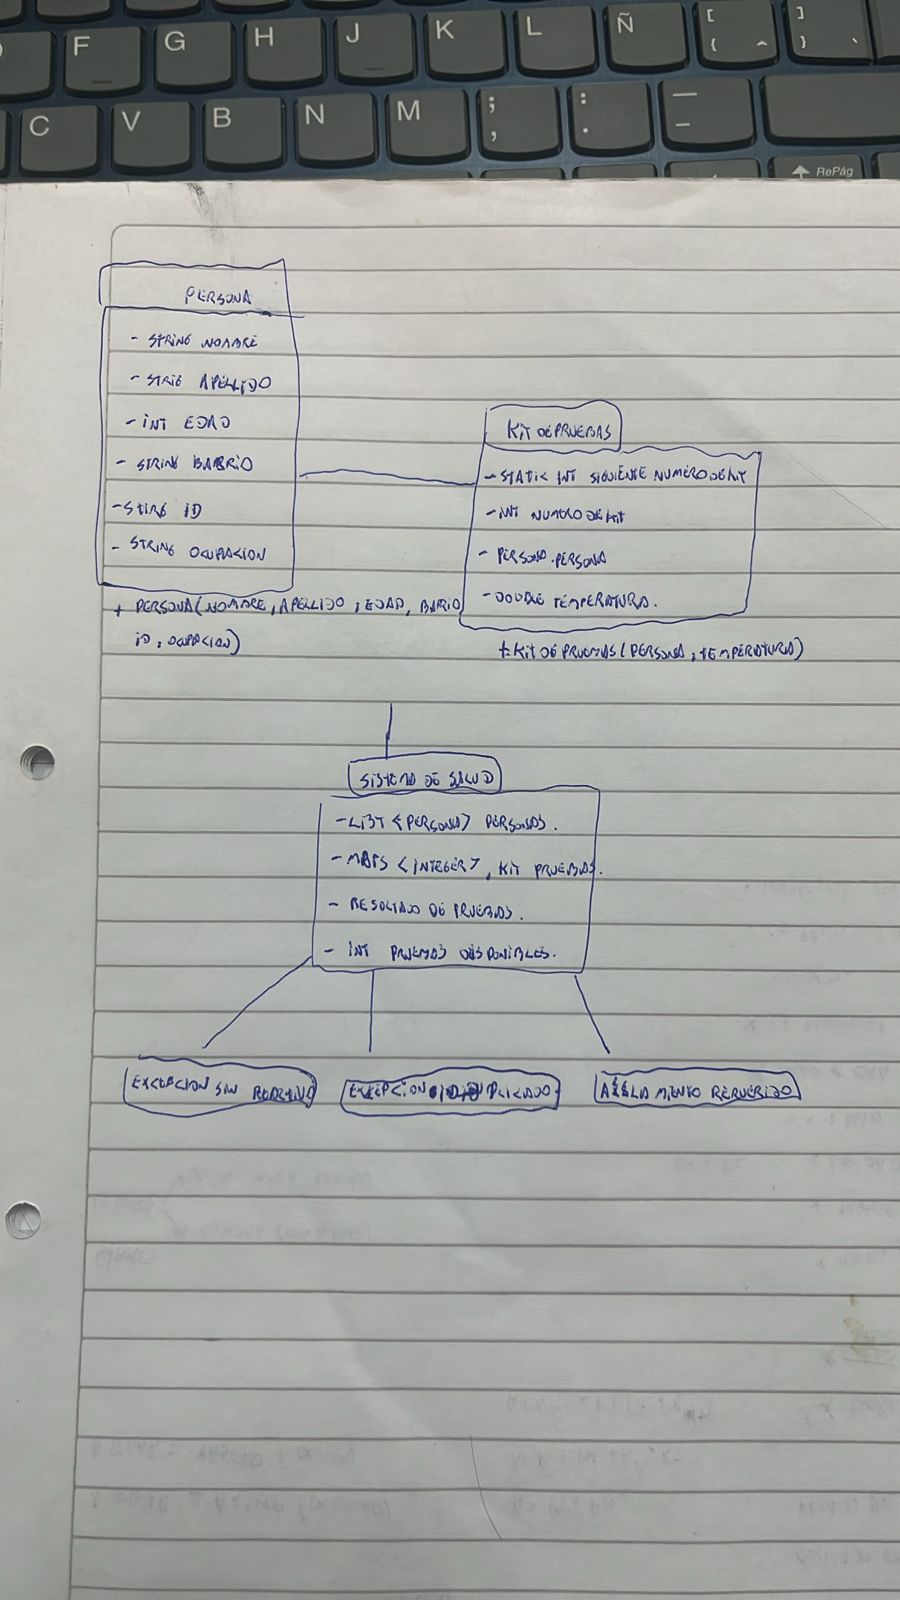 F G H J K L Ñ [ { ^ ] } `
C V B N M ; , : . — –
RePág
PERSONA
- STRING NOMBRE
- STRIG APELLIDO
- INT EDAD
- STRING BARRIO
- STIRG ID
- STRING OCUPACION
+ PERSONA(NOMBRE, APELLIDO, EDAD, BARIO
ID, OCUPACION)
KIT DE PRUEBAS
- STATIC INT SIGUIENTE NUMERO DE KIT
- INT NUMERO DE KIT
- PERSONA.PERSONA
- DOUBLE TEMPERATURA.
+ KIT DE PRUEBAS (PERSONA, TEMPERATURA)
SISTEMA DE SALUD
- LIST <PERSONA> PERSONAS.
- MAPS <INTEGER>, KIT PRUEBAS.
- RESOLTADO DE PRUEBAS.
- INT PRUEBAS DISPONIBLES.
EXCEPCION SIN
EXCEPCION
AISLAMIENTO REQUERIDO